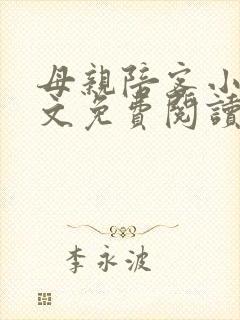 母親陪客小
文免費閱讀
李永波